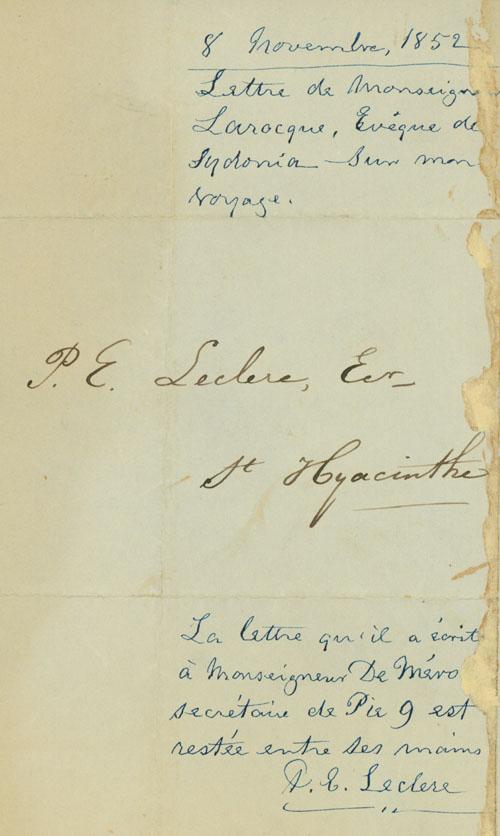 8 Novembre, 1852
Lettre de Monseign
Larocque, Evêque de
Sydonia - Sur mon
voyage.
P. E. Leclere, Ecr
St Hyacinthe
La lettre qu'il a écrit
à Monseigneur De Méro
secrétaire de Pie 9 est
restée entre ses mains
P. E. Leclere